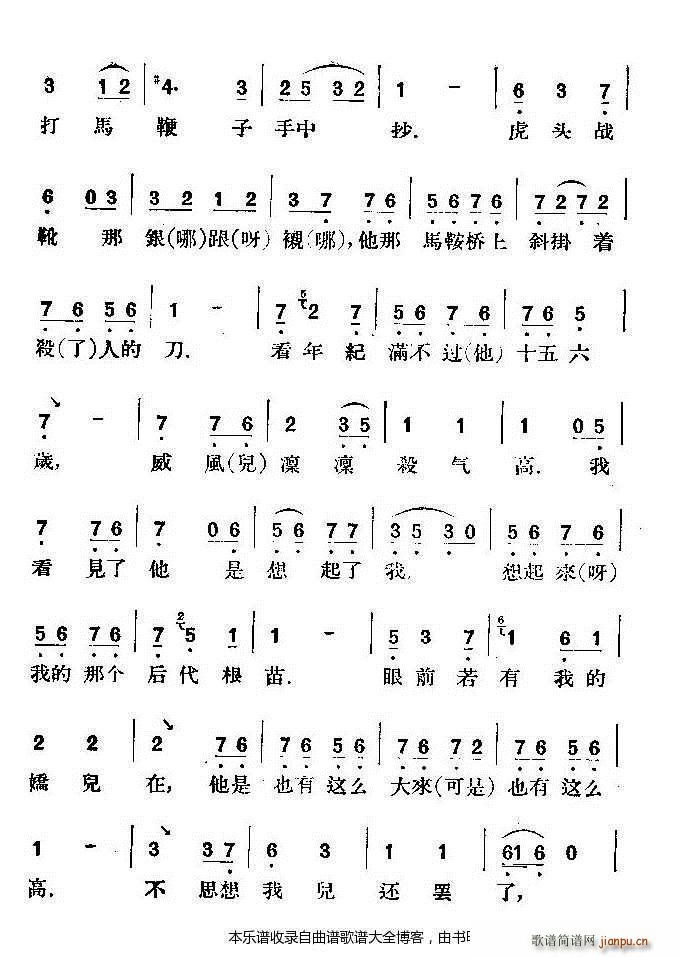 3 1 2 #4· 3 2 5 3 2 1 - 6 3 7
打馬鞭子手中抄.虎头战
6 0 3 3 2 1 2 3 7 7 6 5 6 7 6 7 2 7 2
靴那銀(哪)跟(呀)襯(哪),他那馬鞍桥上斜掛着
7 6 5 6 1 - 7 5 2 7 5 6 7 6 7 6 5
殺(了)人的刀.看年紀滿不过(他)十五六
7 - 7 7 6 2 3 5 1 1 1 0 5
歲,威風(兒)凜凜殺气高.我
7 7 6 7 0 6 5 6 7 7 3 5 3 0 5 6 7 6
看見了他是想起了我.想起來(呀)
5 6 7 6 7 2 5 1 1 - 5 3 7 6 1 6 1
我的那个后代根苗.眼前若有我的
2 2 2 7 6 7 6 5 6 7 6 7 2 7 6 5 6
嬌兒在,他是也有这么大來(可是)也有这么
1 - 3 3 7 6 3 1 1 6 1 6 0
高.不思想我兒还罢了,
本乐谱收录自曲谱歌谱大全博客，由书
歌谱简谱网 jianpu.cn